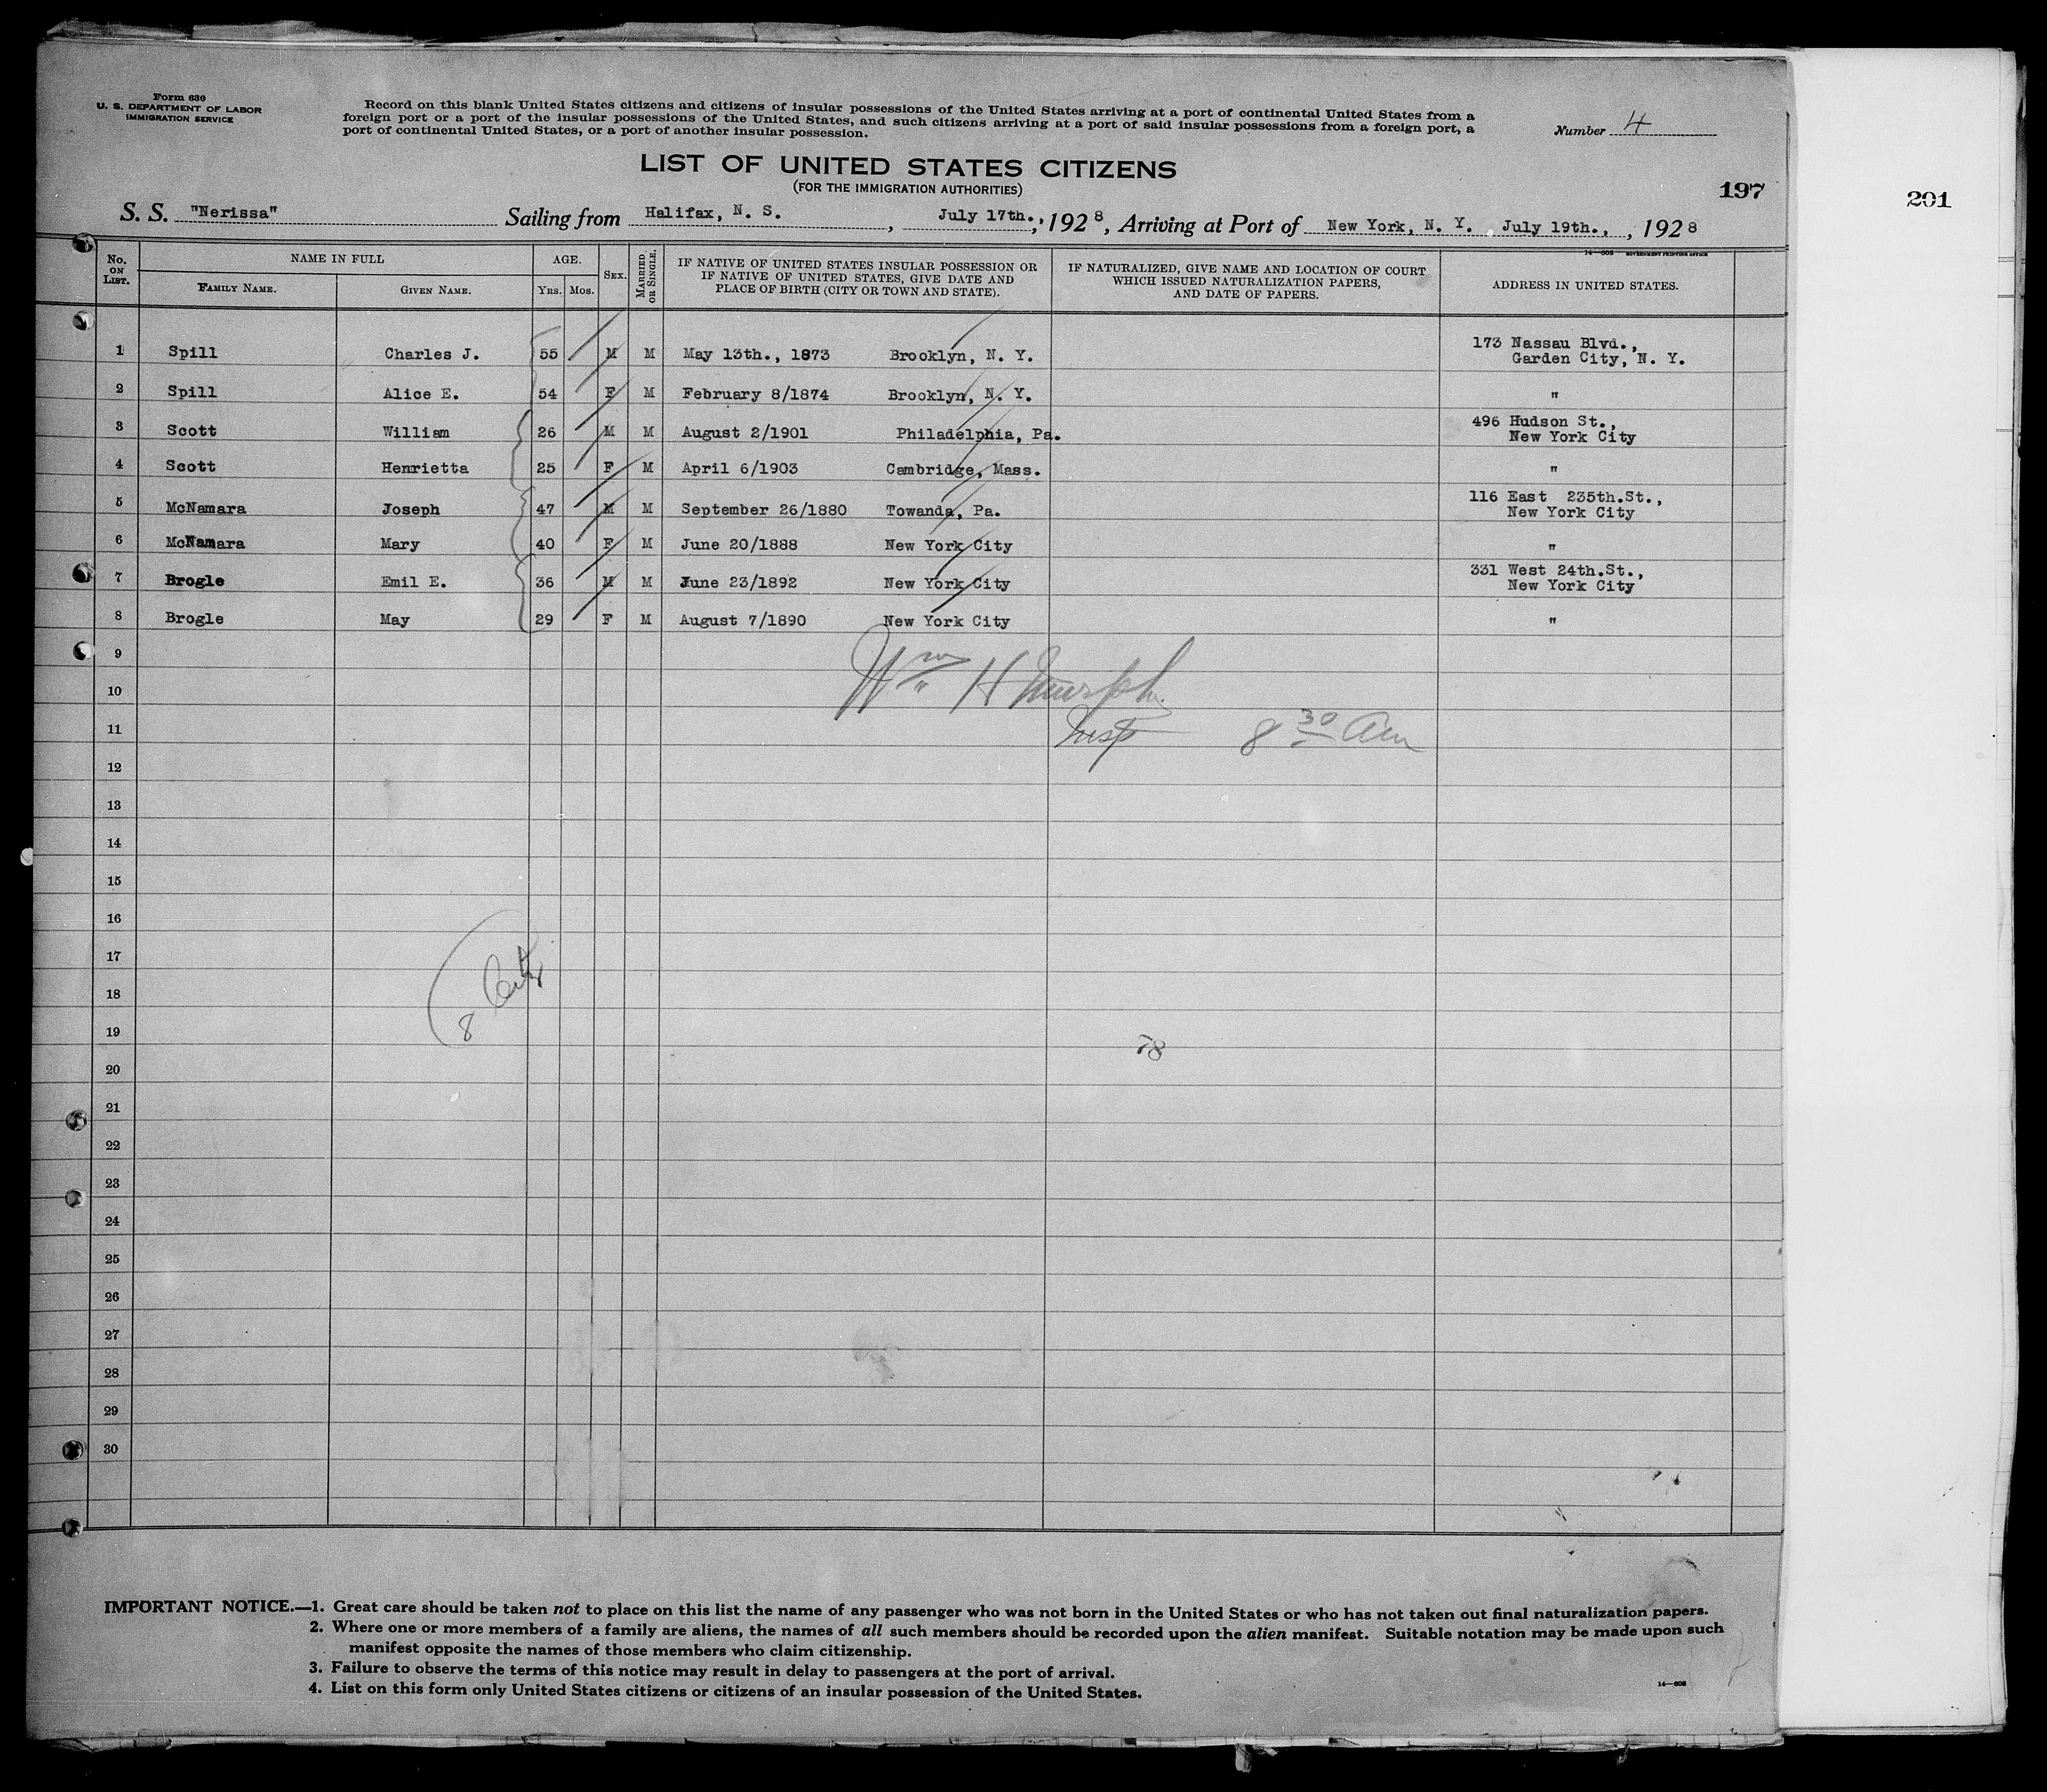 Form 630
U. S. DEPARTMENT OF LABOR
IMMIGRATION SERVICE
Record on this blank United States citizens and citizens of insular possessions of the United States arriving at a port of continental United States from a
foreign port or a port of the insular possessions of the United States, and such citizens arriving at a port of said insular possessions from a foreign port, a
port of continental United States, or a port of another insular possession.
Number 4
LIST OF UNITED STATES CITIZENS
(FOR THE IMMIGRATION AUTHORITIES)
197
201
S. S. "Nerissa" Sailing from Halifax, N. S., July 17th., 1928, Arriving at Port of New York, N. Y. July 19th., 1928
14—608 GOVERNMENT PRINTING OFFICE
No. ON LIST. NAME IN FULL FAMILY NAME. GIVEN NAME. AGE. YRS. MOS. SEX. MARRIED OR SINGLE. IF NATIVE OF UNITED STATES INSULAR POSSESSION OR IF NATIVE OF UNITED STATES, GIVE DATE AND PLACE OF BIRTH (CITY OR TOWN AND STATE). IF NATURALIZED, GIVE NAME AND LOCATION OF COURT WHICH ISSUED NATURALIZATION PAPERS, AND DATE OF PAPERS. ADDRESS IN UNITED STATES.
1 Spill Charles J. 55 M M May 13th., 1873 Brooklyn, N. Y. 173 Nassau Blvd.,
Garden City, N. Y.
2 Spill Alice E. 54 F M February 8/1874 Brooklyn, N. Y. "
3 Scott William 26 M M August 2/1901 Philadelphia, Pa. 496 Hudson St.,
New York City
4 Scott Henrietta 25 F M April 6/1903 Cambridge, Mass. "
5 McNamara Joseph 47 M M September 26/1880 Towanda, Pa. 116 East 235th.St.,
New York City
6 McNamara Mary 40 F M June 20/1888 New York City "
7 Brogle Emil E. 36 M M June 23/1892 New York City 331 West 24th.St.,
New York City
8 Brogle May 29 F M August 7/1890 New York City "
9
Wm H Murphy
10
11 Insp 8 30 Am
12
13
14
15
16
17
18
8 Citz
19
78
20
21
22
23
24
25
26
27
28
29
30
IMPORTANT NOTICE.—1. Great care should be taken not to place on this list the name of any passenger who was not born in the United States or who has not taken out final naturalization papers.
2. Where one or more members of a family are aliens, the names of all such members should be recorded upon the alien manifest. Suitable notation may be made upon such
manifest opposite the names of those members who claim citizenship.
3. Failure to observe the terms of this notice may result in delay to passengers at the port of arrival.
4. List on this form only United States citizens or citizens of an insular possession of the United States.
14—608